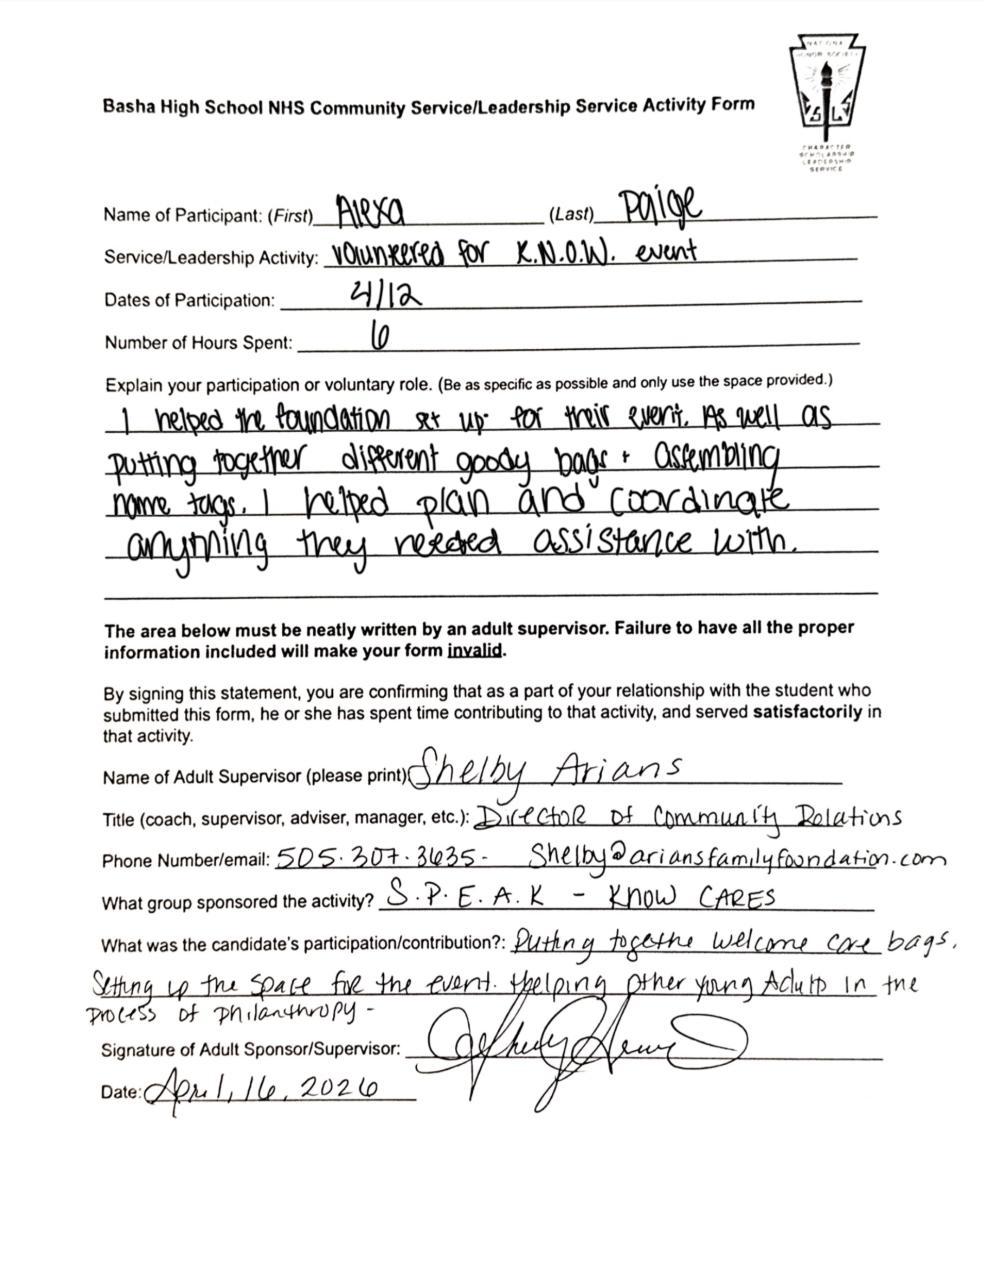 NATIONAL
HONOR SOCIETY
CHARACTER
SCHOLARSHIP
LEADERSHIP
SERVICE
Basha High School NHS Community Service/Leadership Service Activity Form
Name of Participant: (First) Alexa (Last) Paige
Service/Leadership Activity: volunteered for K.N.O.W. event
Dates of Participation: 4/12
Number of Hours Spent: 6
Explain your participation or voluntary role. (Be as specific as possible and only use the space provided.)
I helped the foundation set up for their event. As well as
putting together different goody bags + assembling
name tags. I helped plan and coordinate
anything they needed assistance with.
The area below must be neatly written by an adult supervisor. Failure to have all the proper
information included will make your form invalid.
By signing this statement, you are confirming that as a part of your relationship with the student who
submitted this form, he or she has spent time contributing to that activity, and served satisfactorily in
that activity.
Name of Adult Supervisor (please print) Shelby Arians
Title (coach, supervisor, adviser, manager, etc.): Director of Community Relations
Phone Number/email: 505.307.3635 - Shelby@ariansfamilyfoundation.com
What group sponsored the activity? S.P.E.A.K - KNOW CARES
What was the candidate's participation/contribution?: Putting togethe welcome care bags.
Setting up the space for the event. Helping other young Adults in the
process of philanthropy -
Signature of Adult Sponsor/Supervisor:
Date: April, 16, 2026